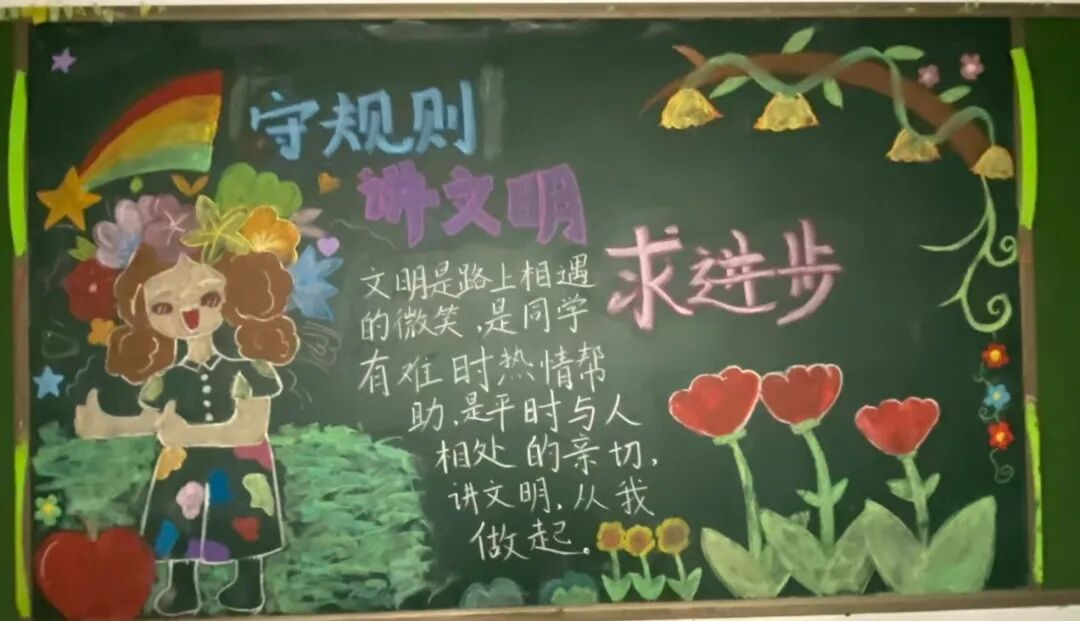 守规则
讲文明
求进步
文明是路上相遇
的微笑,是同学
有难时热情帮
助,是平时与人
相处的亲切,
讲文明,从我
做起。